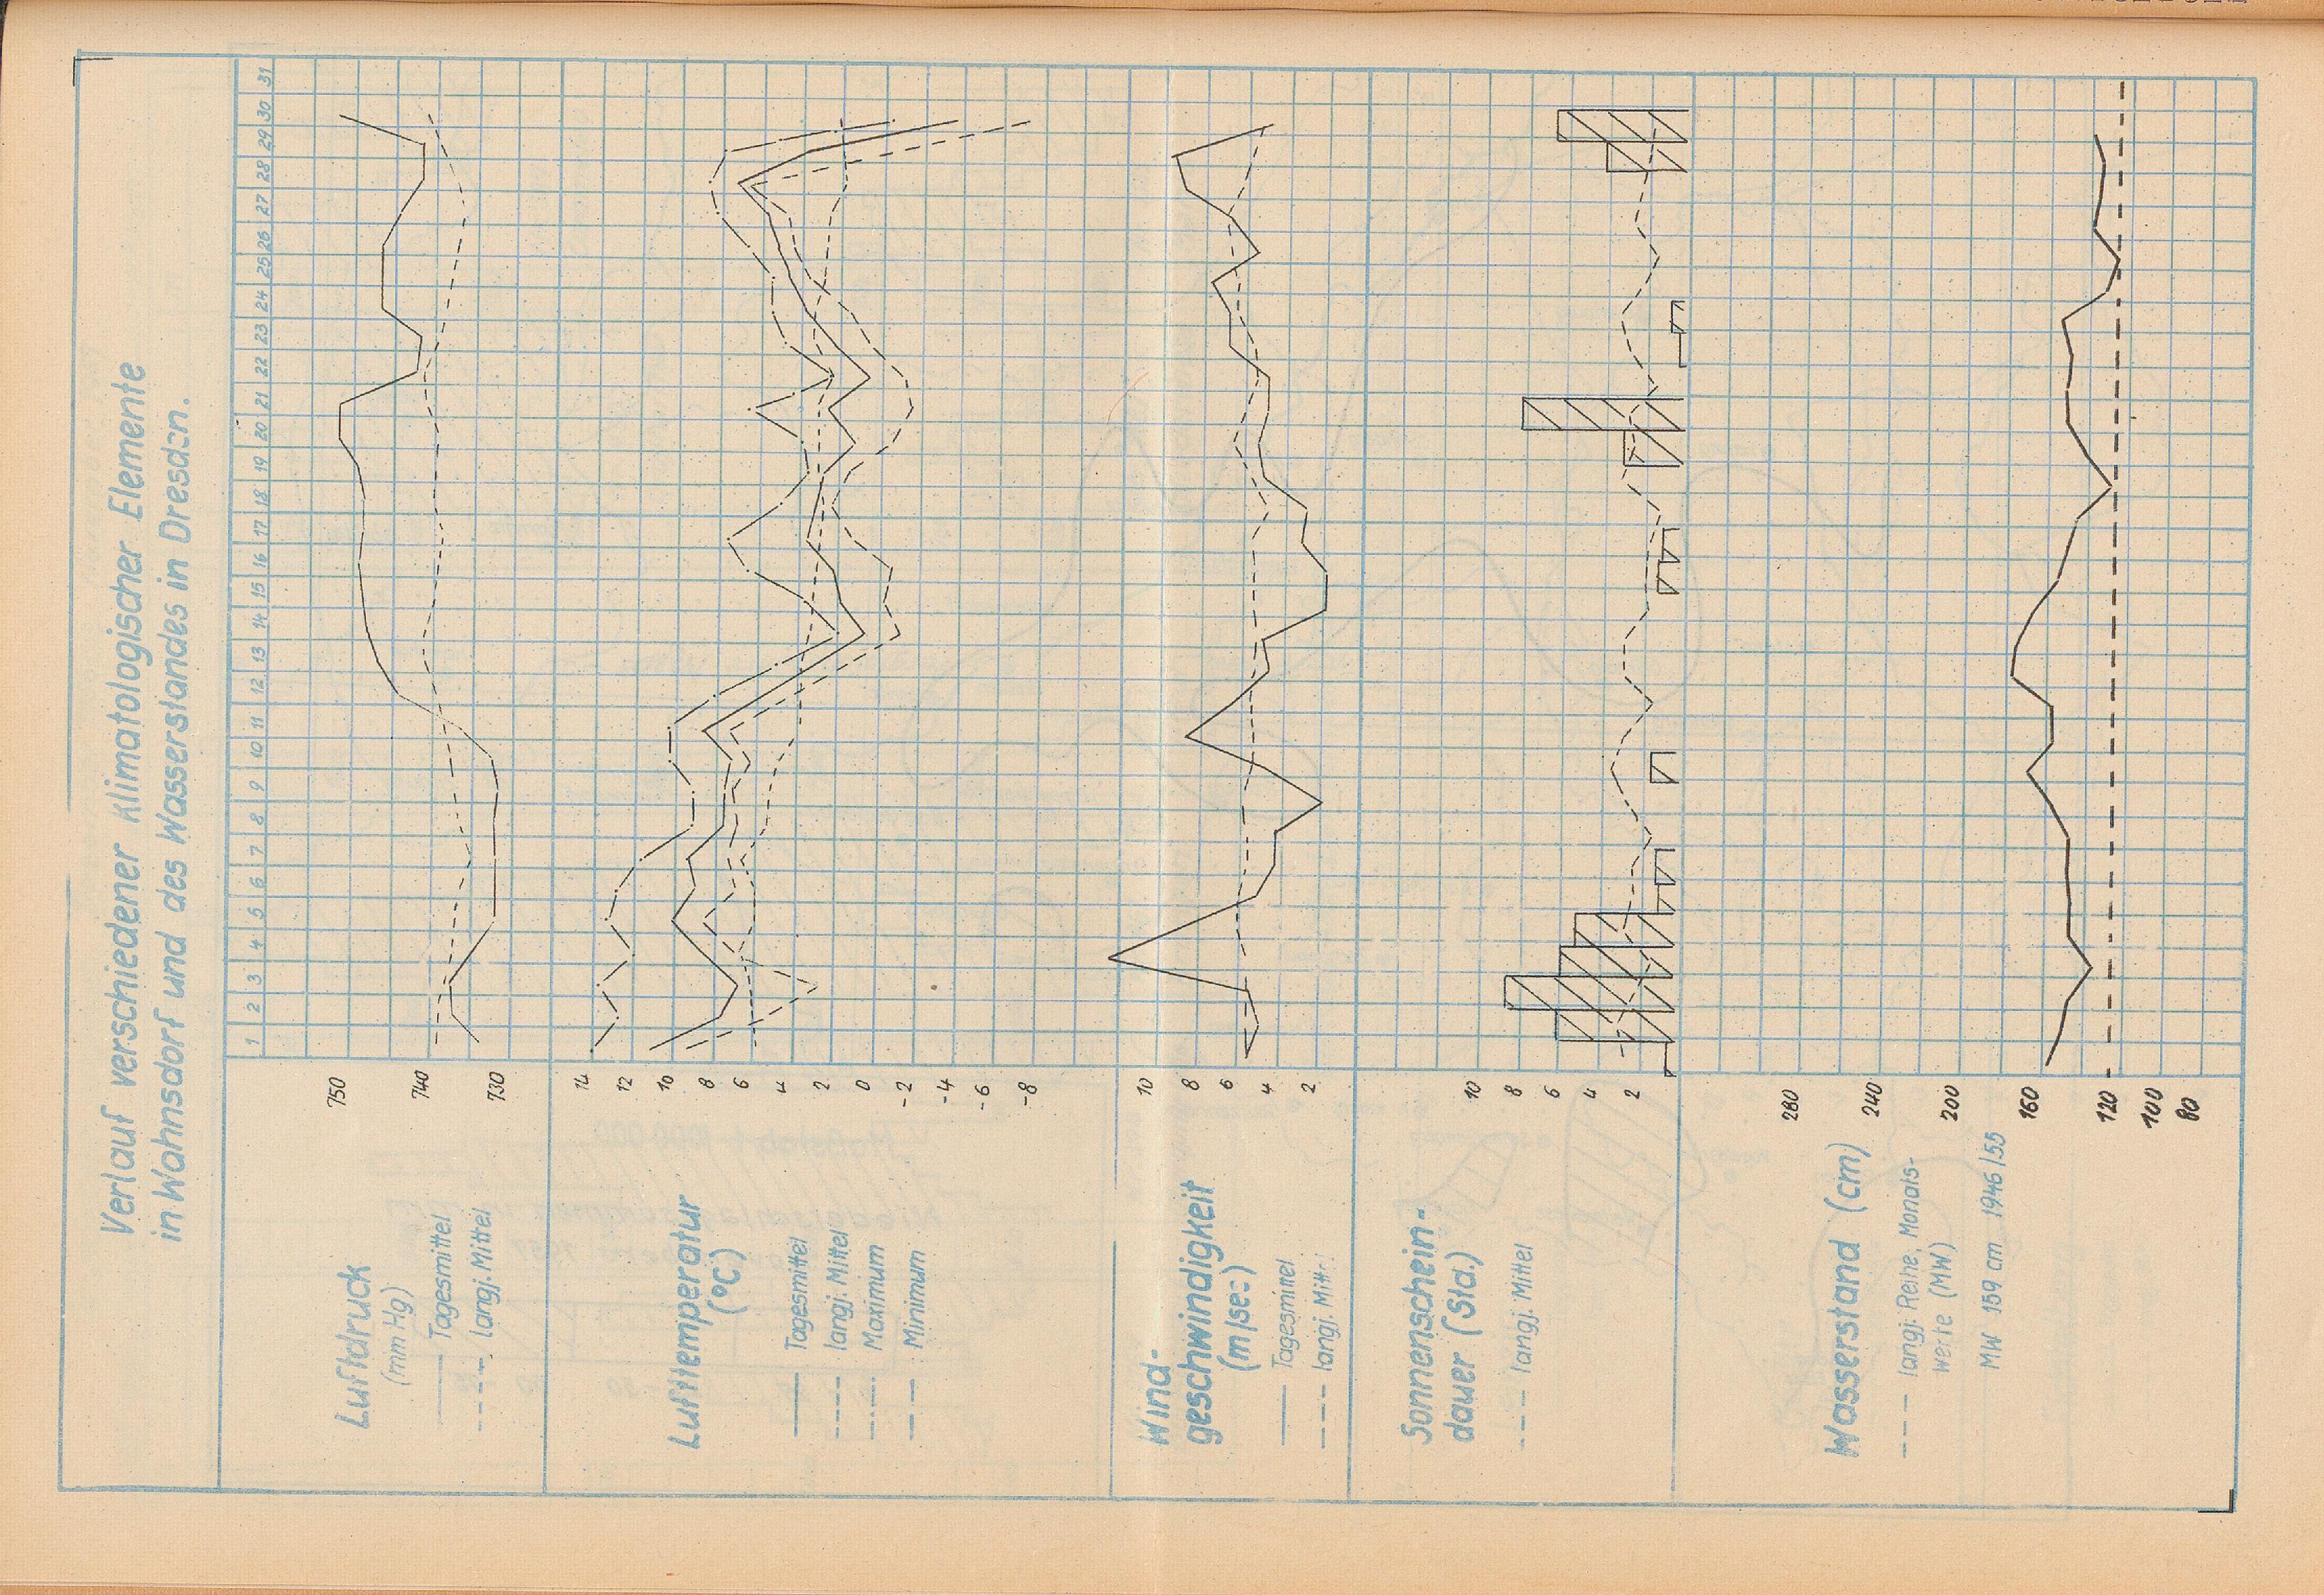 Verlauf verschiedener klimatologischer Elemente
in Wahnsdorf und des Wasserstandes in Dresden.
1 2 3 4 5 6 7 8 9 10 11 12 13 14 15 16 17 18 19 20 21 22 23 24 25 26 27 28 29 30 31
Luftdruck
(mm Hg)
Tagesmittel
langj. Mittel
750
740
730
Lufttemperatur
(°C)
Tagesmittel
langj. Mittel
Maximum
Minimum
14
12
10
8
6
4
2
0
-2
-4
-6
-8
Wind-
geschwindigkeit
(m/sec)
Tagesmittel
langj. Mitte
10
8
6
4
2
Sonnenschein-
dauer (Std.)
langj. Mittel
10
8
6
4
2
Wasserstand (cm)
langj. Reihe, Monats-
werte (MW)
MW 159 cm 1946/55
280
240
200
160
120
100
80